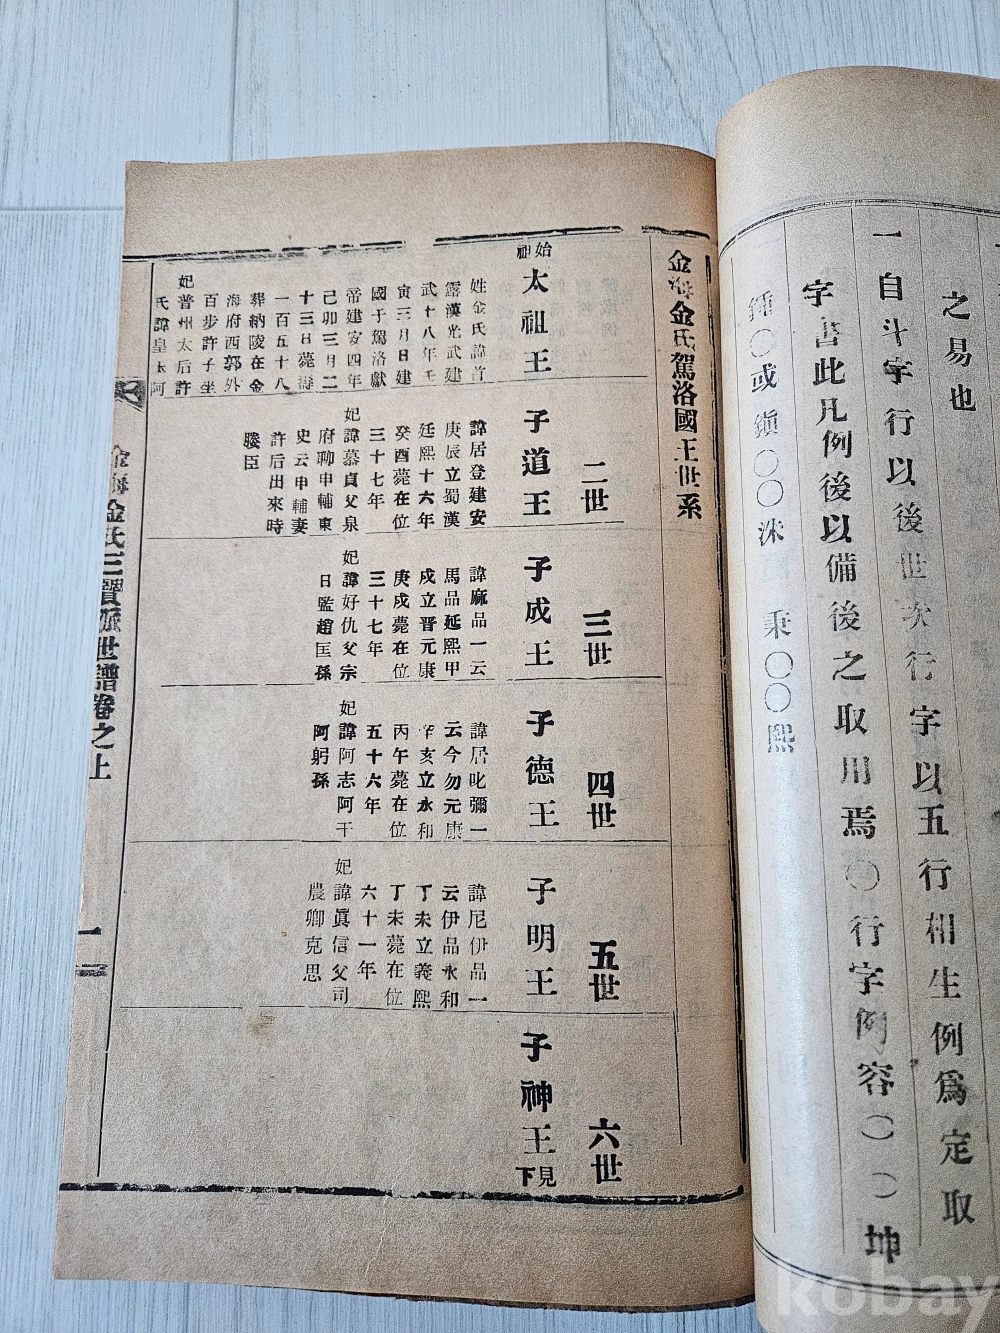 之易也
一自斗字行以後世次行字以五行相生例爲定取
字書此凡例後以備後之取用焉〇行字例容〇〇坤
鍾〇或鎭〇〇洙 秉〇〇熙
金海金氏駕洛國王世系
二世
三世
四世
五世
六世
始祖
太祖王
姓金氏諱首
露漢光武建
武十八年壬
寅三月日建
國于駕洛獻
帝建安四年
己卯三月二
十三日薨壽
一百五十八
葬納陵在金
海府西郭外
百步許子坐
妃普州太后許
氏諱皇玉阿
子道王
諱居登建安
庚辰立蜀漢
廷熙十六年
癸酉薨在位
三十七年
妃諱慕貞父泉
府聊申輔東
史云申輔妻
許后出來時
媵臣
子成王
諱麻品一云
馬品延熙甲
戍立晋元康
庚戍薨在位
三十七年
妃諱好仇父宗
日監趙匡孫
子德王
諱居叱彌一
云今勿元康
辛亥立永和
丙午薨在位
五十六年
妃諱阿志阿干
阿躬孫
子明王
諱尼伊品一
云伊品永和
丁未立義熙
丁未薨在位
六十一年
妃諱眞信父司
農卿克思
子神王
見下
金海金氏三賢派世譜卷之上
一
kobay